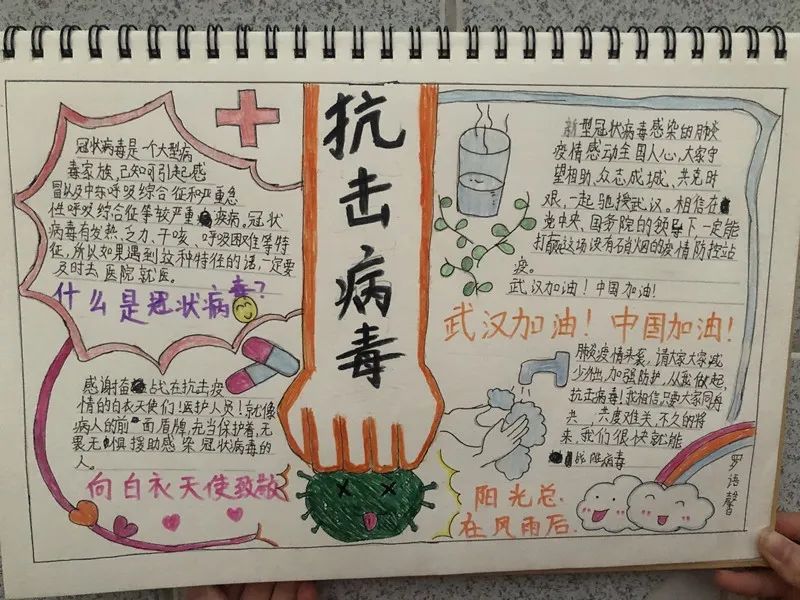 抗击病毒
冠状病毒是一个大型病
毒家族,已知可引起感
冒以及中东呼吸综合征和严重急
性呼吸综合征等较严重疾病。冠状
病毒有发热、乏力、干咳、呼吸困难等特
征,所以如果遇到这种特征的话,一定要
及时去医院就医。
什么是冠状病毒?
感谢奋战在抗击疫
情的白衣天使们!医护人员!就像
病人的前面盾牌,充当保护着,无
畏无惧援助感染冠状病毒的
人。
向白衣天使致敬
新型冠状病毒感染的肺炎
疫情感动全国人心,大家守
望相助、众志成城、共克时
艰,一起驰援武汉。相信在
党中央、国务院的领导下一定能
打赢这场没有硝烟的疫情防控站
疫。
武汉加油!中国加油!
武汉加油!中国加油!
肺炎疫情来袭,请大家大家减
少外出,加强防护,从我做起,
抗击病毒!我相信只要大家同舟
共,共度难关,不久的将
来,我们很快就能
战胜病毒
阳光总
在风雨后.
罗语馨